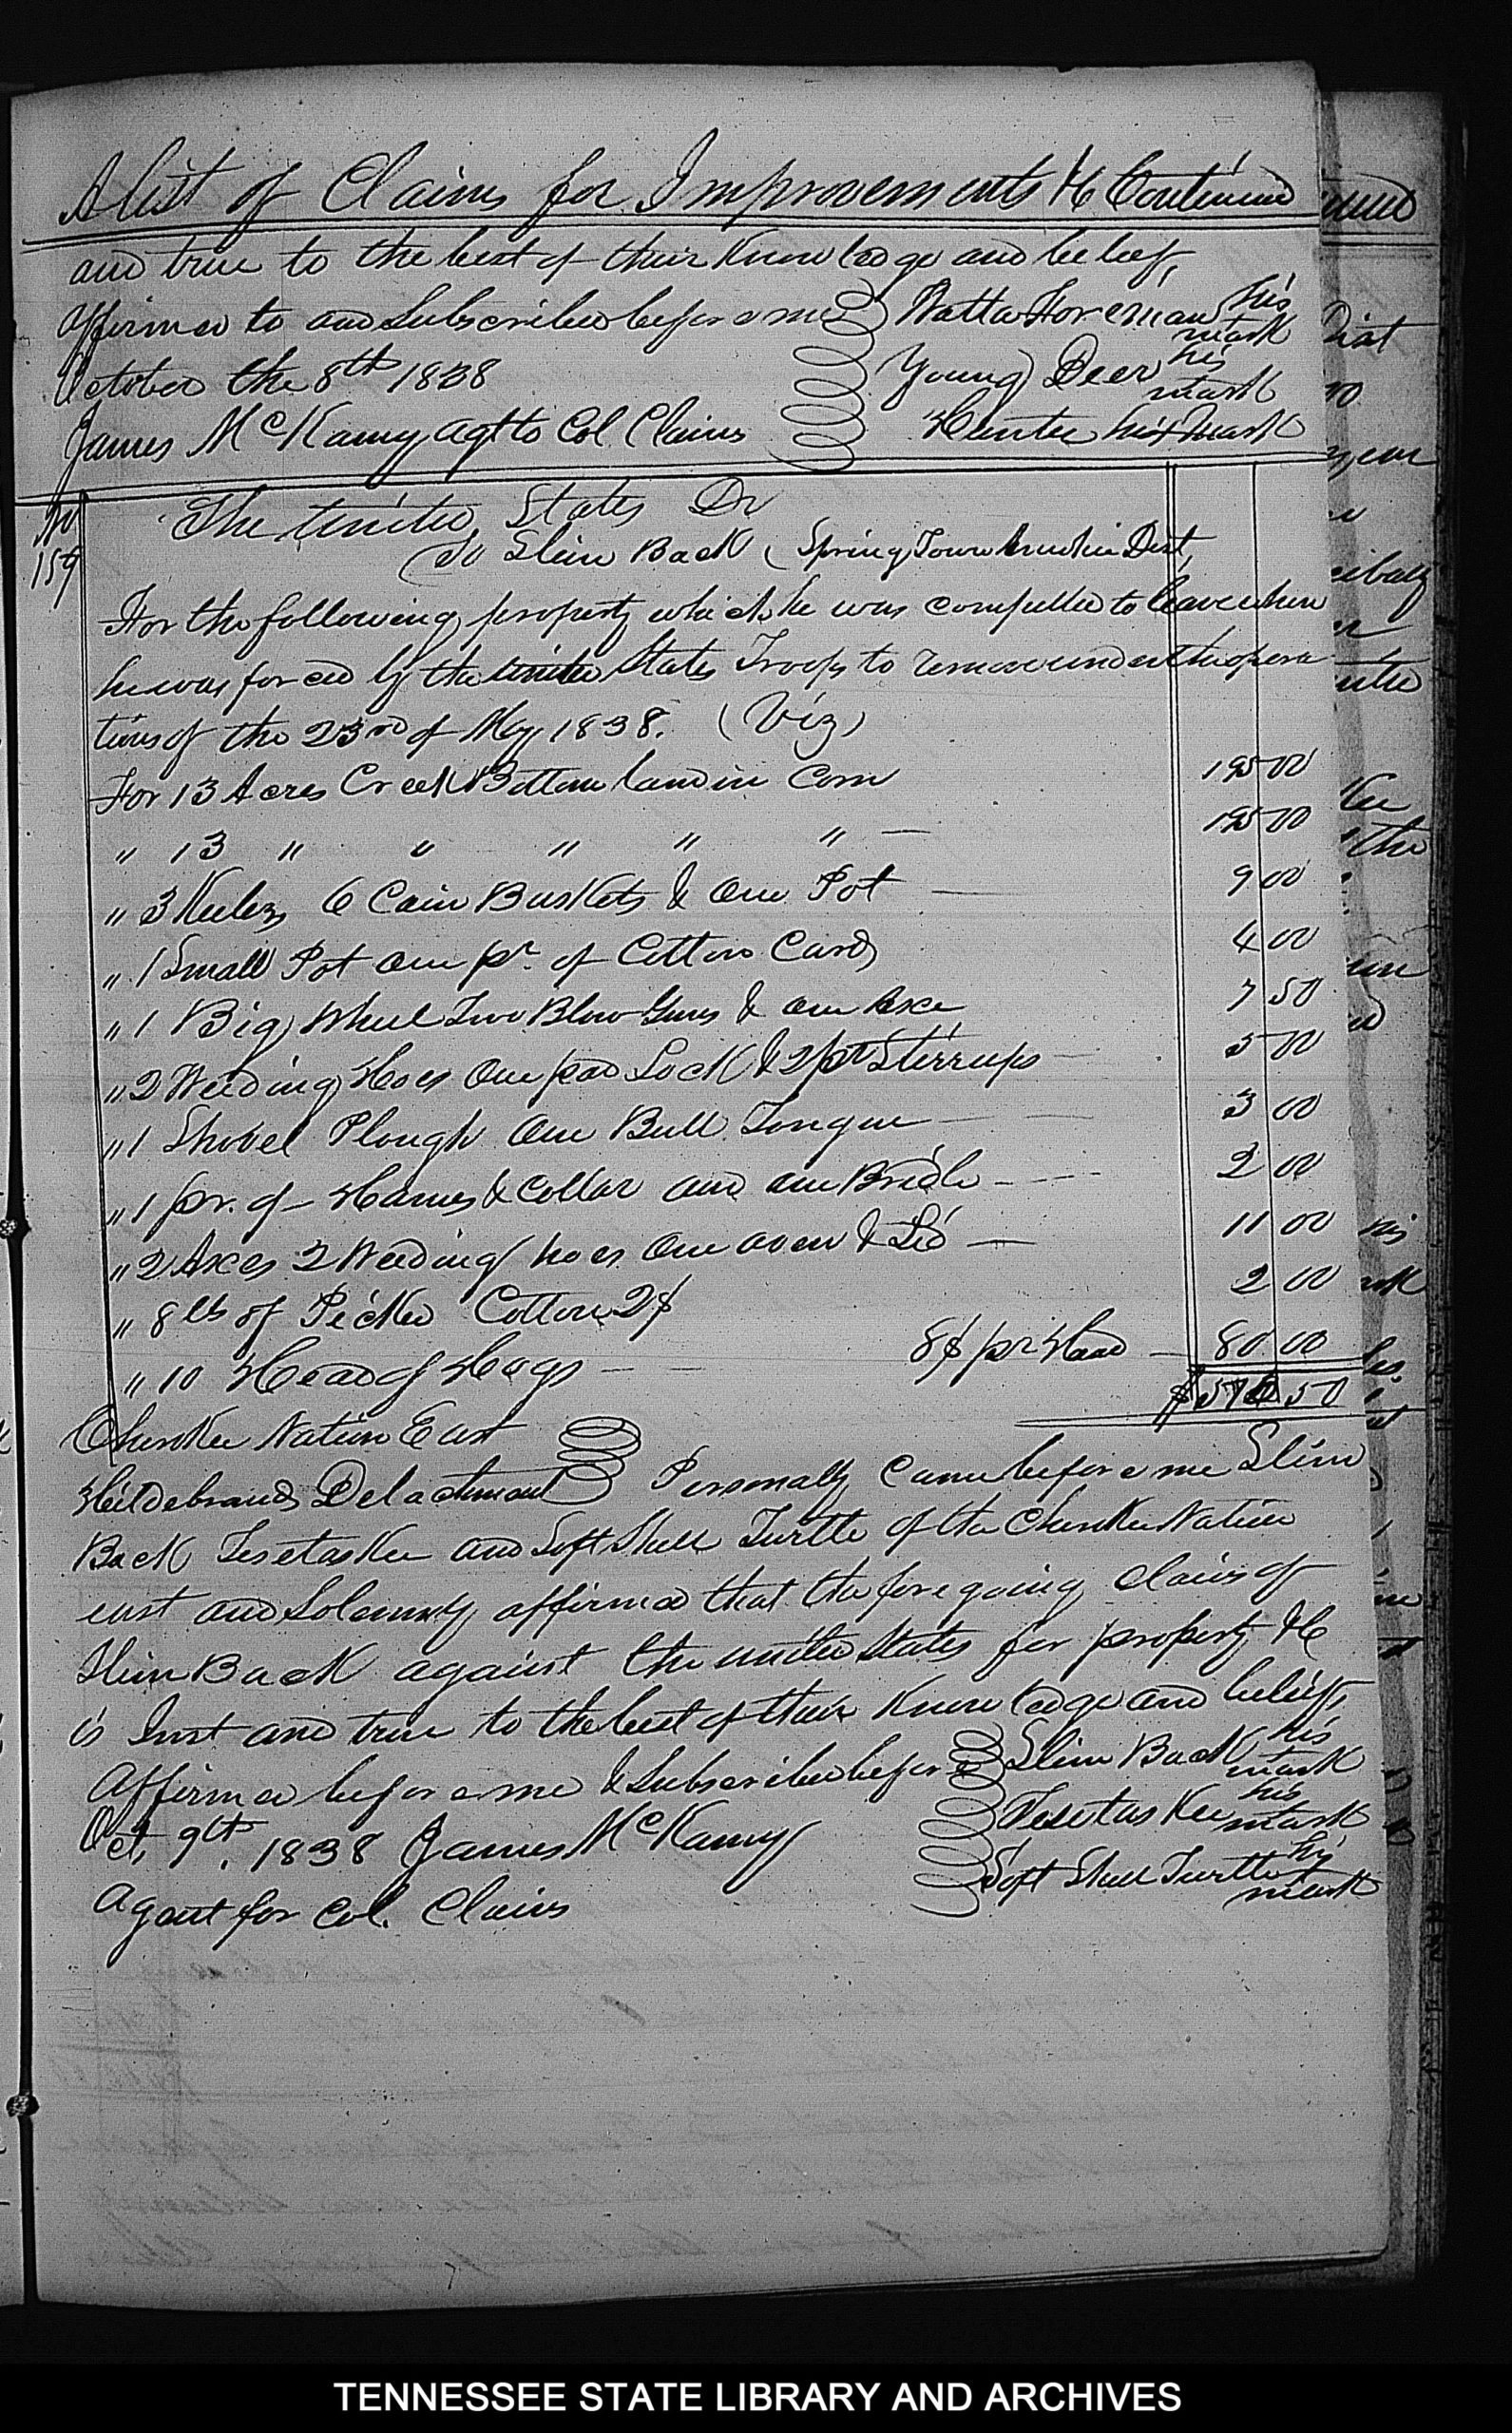 A list of Claims for Improvements &c Continued
and true to the best of their Knowledge and belief,
affirmed to and Subscribed before me Watta Foreman his mark
October the 8th 1838 Young Deer his mark
James McKamy, agt to Col. Claims Hunter his mark
No 159
The United States Dr
To Slim Back (Spring Town Amohee Dist,
For the following property which he was compelled to leave when
he was forced by the United States Troops to remove under the opera
tions of the 23rd of May 1838. (Viz)
For 13 Acres Creek Bottom land in Corn 195 00
" 13 " " " " " 195 00
" 3 Keelers 6 Cain Baskets & One Pot 9 00
" 1 Small Pot one pr. of Cotton Cards 4 00
" 1 Big Wheel Two Blow Guns & one Axe 7 50
" 2 Weeding Hoes One pad Lock & 2 pr Stirrups 5 00
" 1 Shovel Plough One Bull Tongue 3 00
" 1 pr. of Hames & Collar and one Bridle 2 00
" 2 Axes 2 Weeding hoes One oven & Lid 11 00
" 8 lbs of Picked Cotton 2$ 2 00
" 10 Head of Hogs 8$ pr Head 80 00
50
Cherokee Nation East
Hildebrands Detachment Personally Came before me Slim
Back Tesetaskee and Soft Shell Turtle of the Cherokee Nation
east and Solemnly affirmed that the foregoing claim of
Slim Back against the United States for property &c
is Just and true to the best of their Knowledge and belief,
Affirmed before me & Subscribed before Slim Back his mark
Oct, 9th, 1838 James McKamy Tesetaskee his mark
Agent for Col. Claims Soft Shell Turtle his mark
TENNESSEE STATE LIBRARY AND ARCHIVES